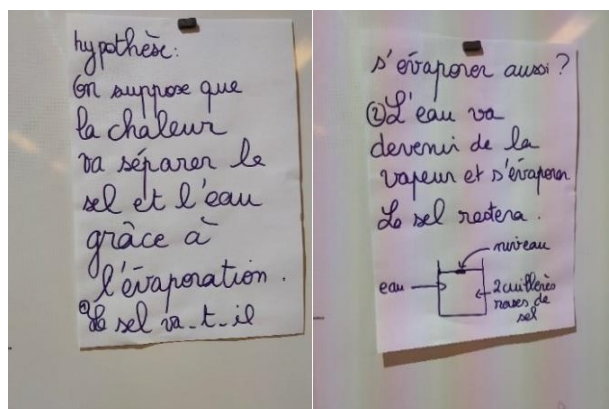 hypothèse:
On suppose que
la chaleur
va séparer le
sel et l'eau
grâce à
l'évaporation.
① Le sel va-t-il
s'évaporer aussi ?
② L'eau va
devenir de la
vapeur et s'évaporer
Le sel restera.
niveau
eau
2 cuillères
rases de
sel